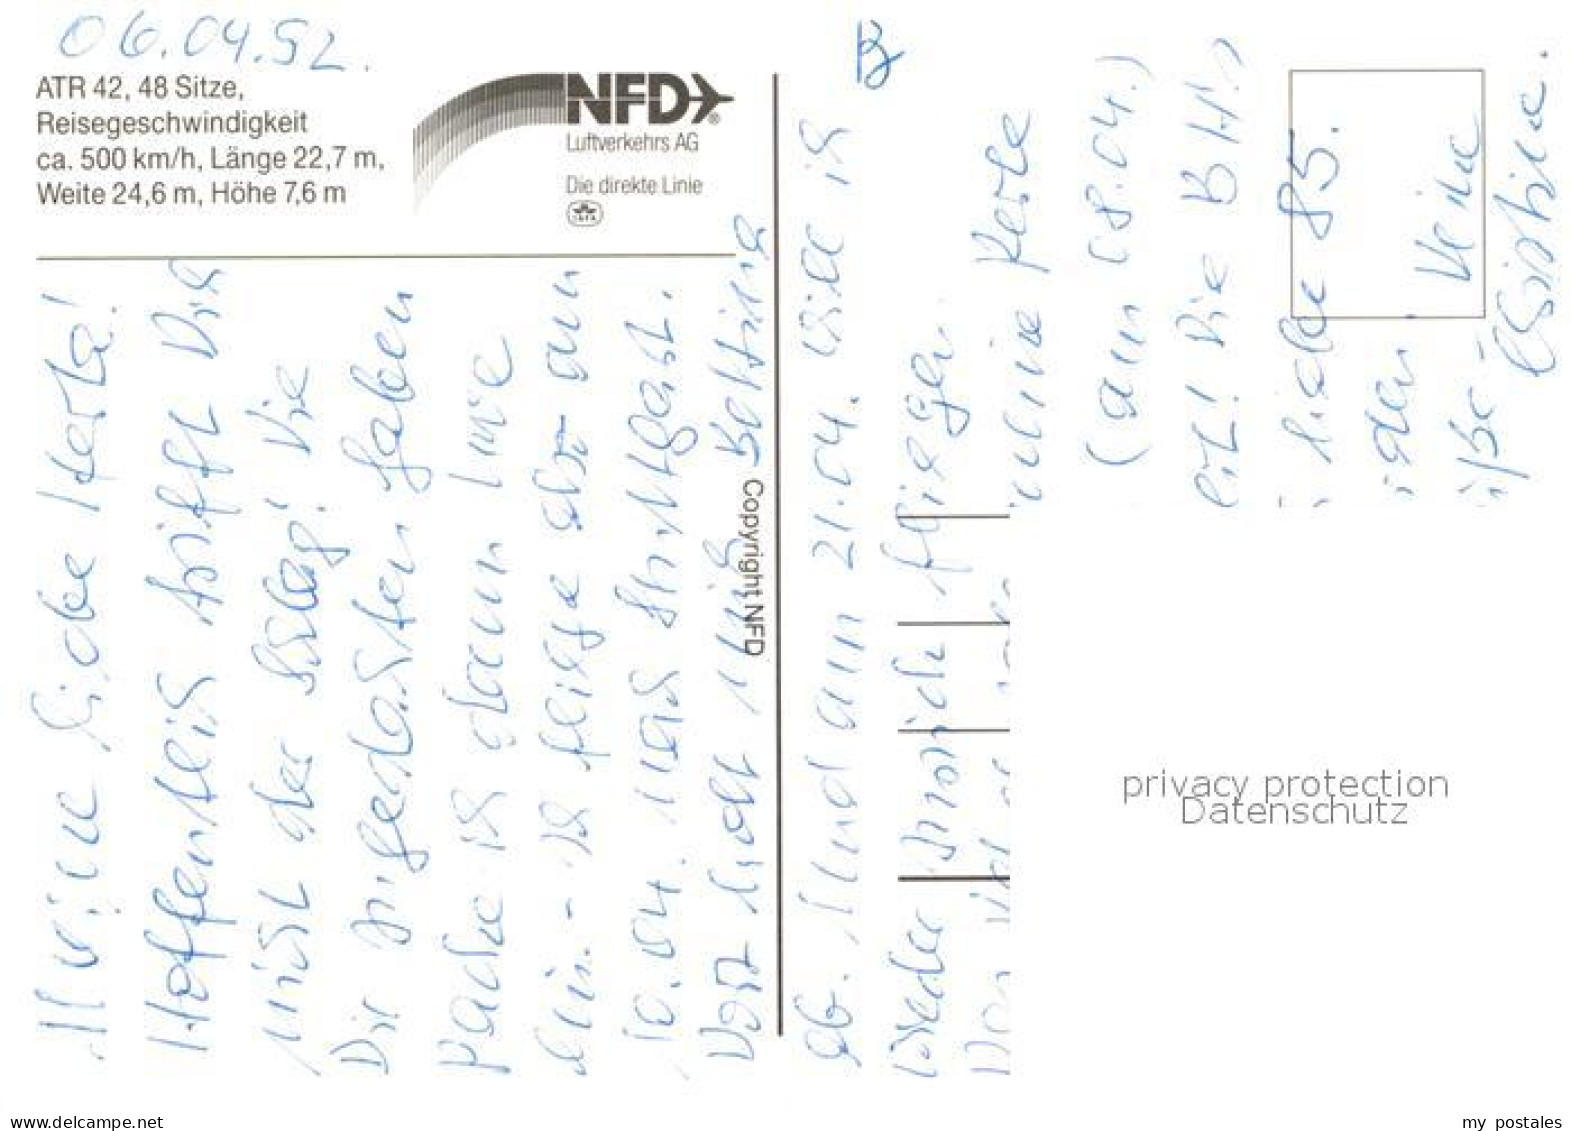 06.04.92.
ATR 42, 48 Sitze,
Reisegeschwindigkeit
ca. 500 km/h, Länge 22,7 m,
Weite 24,6 m, Höhe 7,6 m
NFD
Luftverkehrs AG
Die direkte Linie
IATA
Copyright NFD
Meine liebe Herta!
Hoffentlich trifft Dich
nicht der Schlag! Die
Dir zugedachten Gaben
packe ich dann
ein - ich fliege also am
10.04. nach Stuttgart.
Dort holt mich Bettina
ab. Und am 21.04. will ich
wieder zurück fliegen
meine Perle
(am 08.04.)
Die BH's
85.
Deine
Christine.
privacy protection
Datenschutz
www.delcampe.net
my_postales